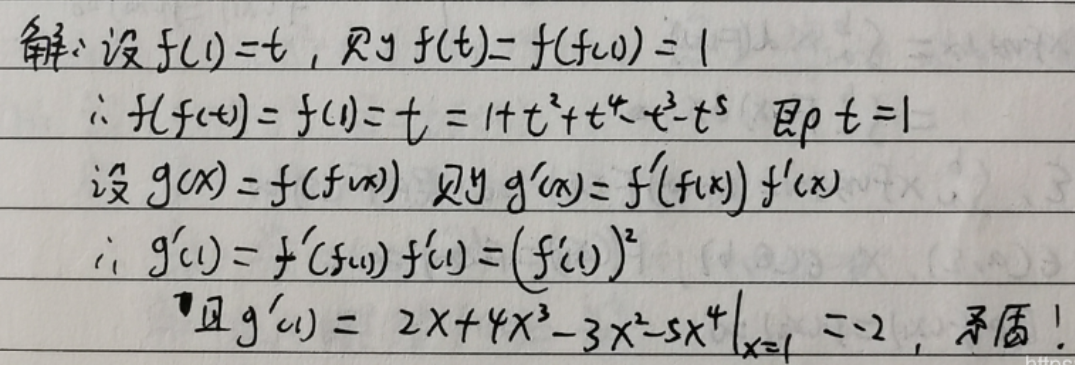 解: 设 f(1)=t , 则 f(t)=f(f(1))=1
∴ f(f(t))=f(1)=t=1+t²+t⁴-t³-t⁵ 即 t=1
设 g(x)=f(f(x)) 则 g'(x)=f'(f(x)) f'(x)
∴ g'(1)=f'(f(1)) f'(1)=(f'(1))²
且 g'(1)= 2x+4x³-3x²-5x⁴|ₓ₌₁ =-2 , 矛盾!
https